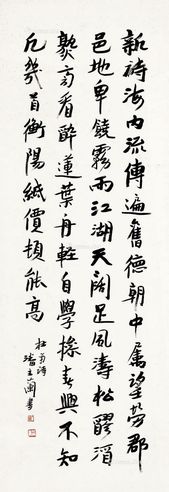 新詩海內流傳遍舊德朝中屬望勞郡
邑地卑饒霧雨江湖天闊足風濤松醪酒
熟旁看醉蓮葉舟輕自學操春興不知
凡幾首衡陽紙價頓能高
杜甫詩
潘主蘭書